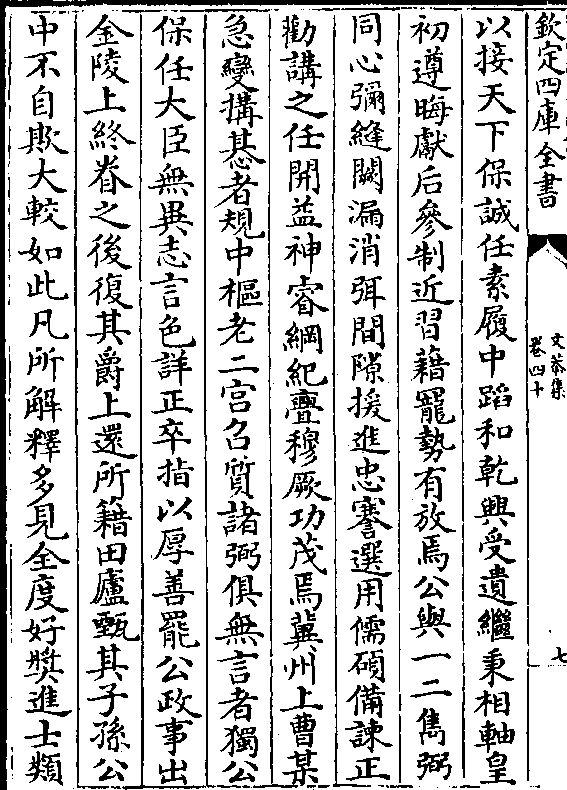 欽定四庫全書
文恭集
卷四十
七
以接天下保誠任素履中蹈和乾興受遺繼秉相軸皇
初遵晦獻后參制近習藉寵勢有放焉公與一二雋弼
同心彌縫闕漏消弭間隙援進忠謇選用儒碩備諫正
勸講之任開益神睿綱紀亹穆厥功茂焉冀州上曹某
急變搆惎者規中樞老二宫召質諸弼俱無言者獨公
保任大臣無異志言色詳正卒指以厚善罷公政事出
金陵上終眷之後復其爵上還所籍田廬甄其子孫公
中不自欺大較如此凡所解釋多見全度好奬進士類